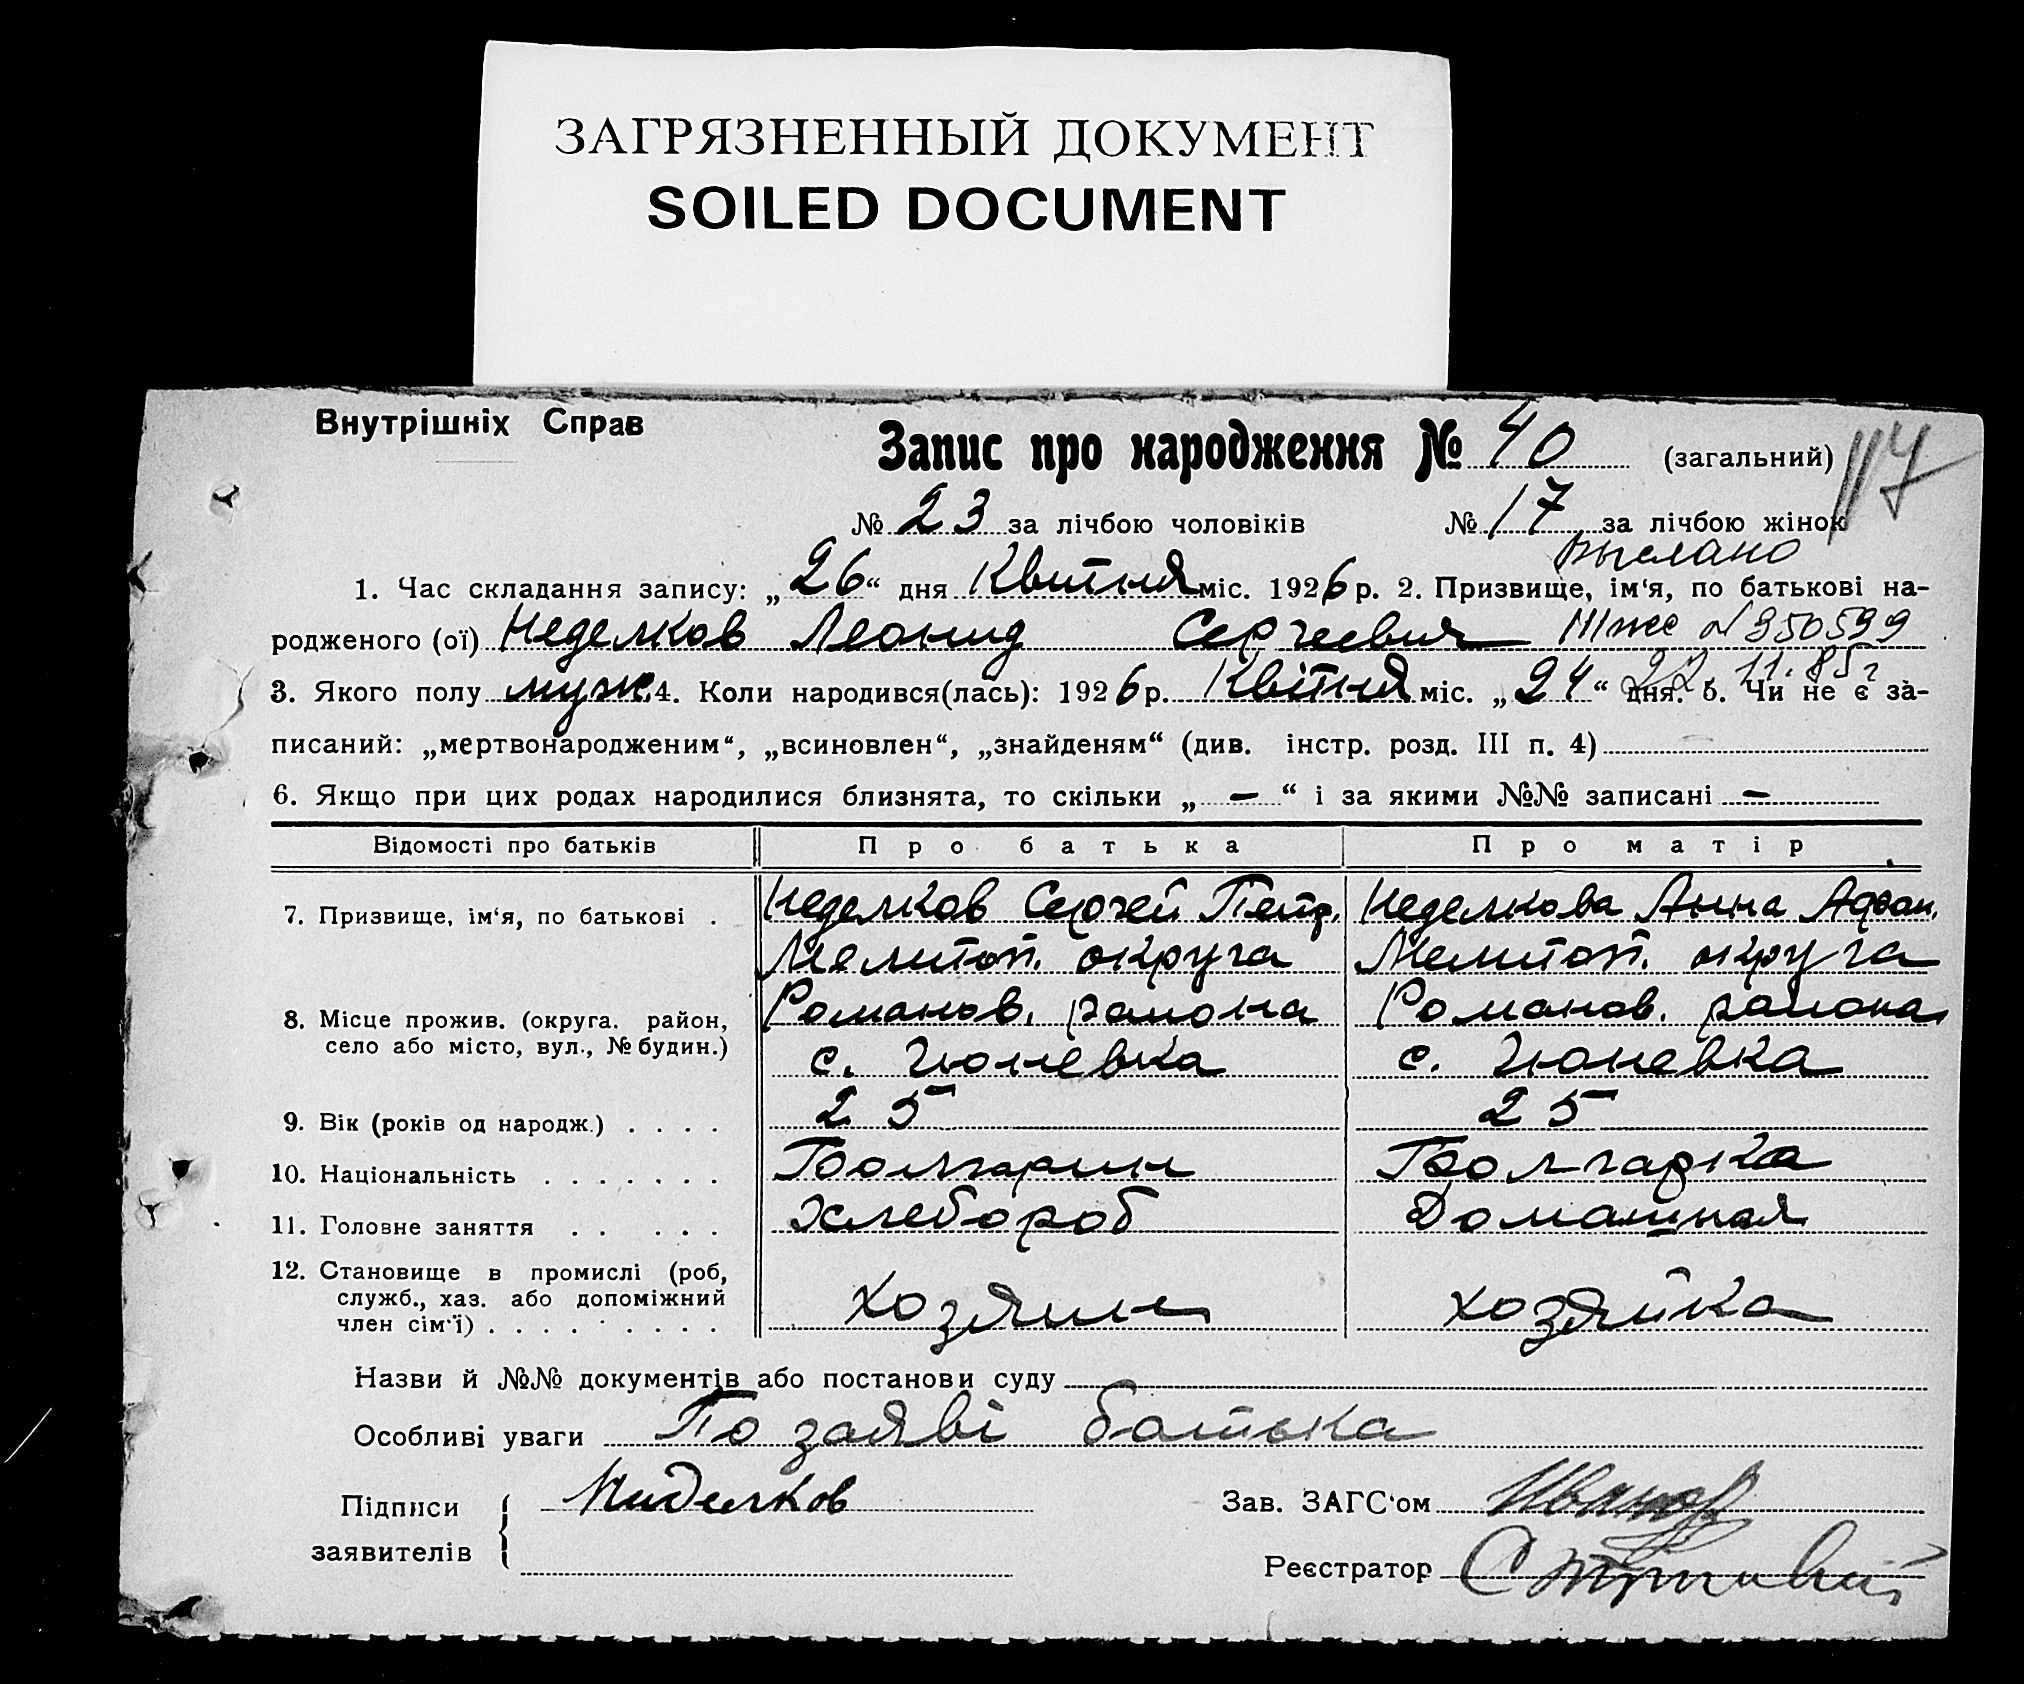 ЗАГРЯЗНЕННЫЙ ДОКУМЕНТ
SOILED DOCUMENT
Внутрішніх Справ
Запис про народження № 40 (загальний) 117
№ 23 за лічбою чоловіків № 17 за лічбою жінок
Выслано
1. Час складання запису: „26“ дня Квитня міс. 1926 р. 2. Призвище, ім‘я, по батькові на-
родженого (ої) Неделков Леонид Сергеевич № 350599
22.11.85г
3. Якого полу муж. 4. Коли народився(лась): 1926 р. Квітня міс. „24“ дня. 5. Чи не є за-
писаний: „мертвонародженим“, „всиновлен“, „знайденям“ (див. інстр. розд. III п. 4)
6. Якщо при цих родах народилися близнята, то скільки „ — “ і за якими №№ записані —
Відомості про батьків Про батька Про матір
7. Призвище, ім‘я, по батькові . Неделков Сергей Петр. Неделкова Анна Афан.
Мелитоп. округа Мелитоп. округа
8. Місце прожив. (округа. район, Романов. района Романов. района
село або місто, вул., № будин.) с. Гюневка с. Гюневка
9. Вік (років од народж.) . . . . 25 25
10. Національність . . . . . . . Болгарин Болгарка
11. Головне заняття . . . . . Хлебороб Домашная
12. Становище в промислі (роб,
служб., хаз. або допоміжний хозяин хозяйка
член сім‘ї) . . . . . . . . .
Назви й №№ документів або постанови суду
Особливі уваги По заяві батька
Підписи Ниделков Зав. ЗАГС‘ом
заявителів Реєстратор